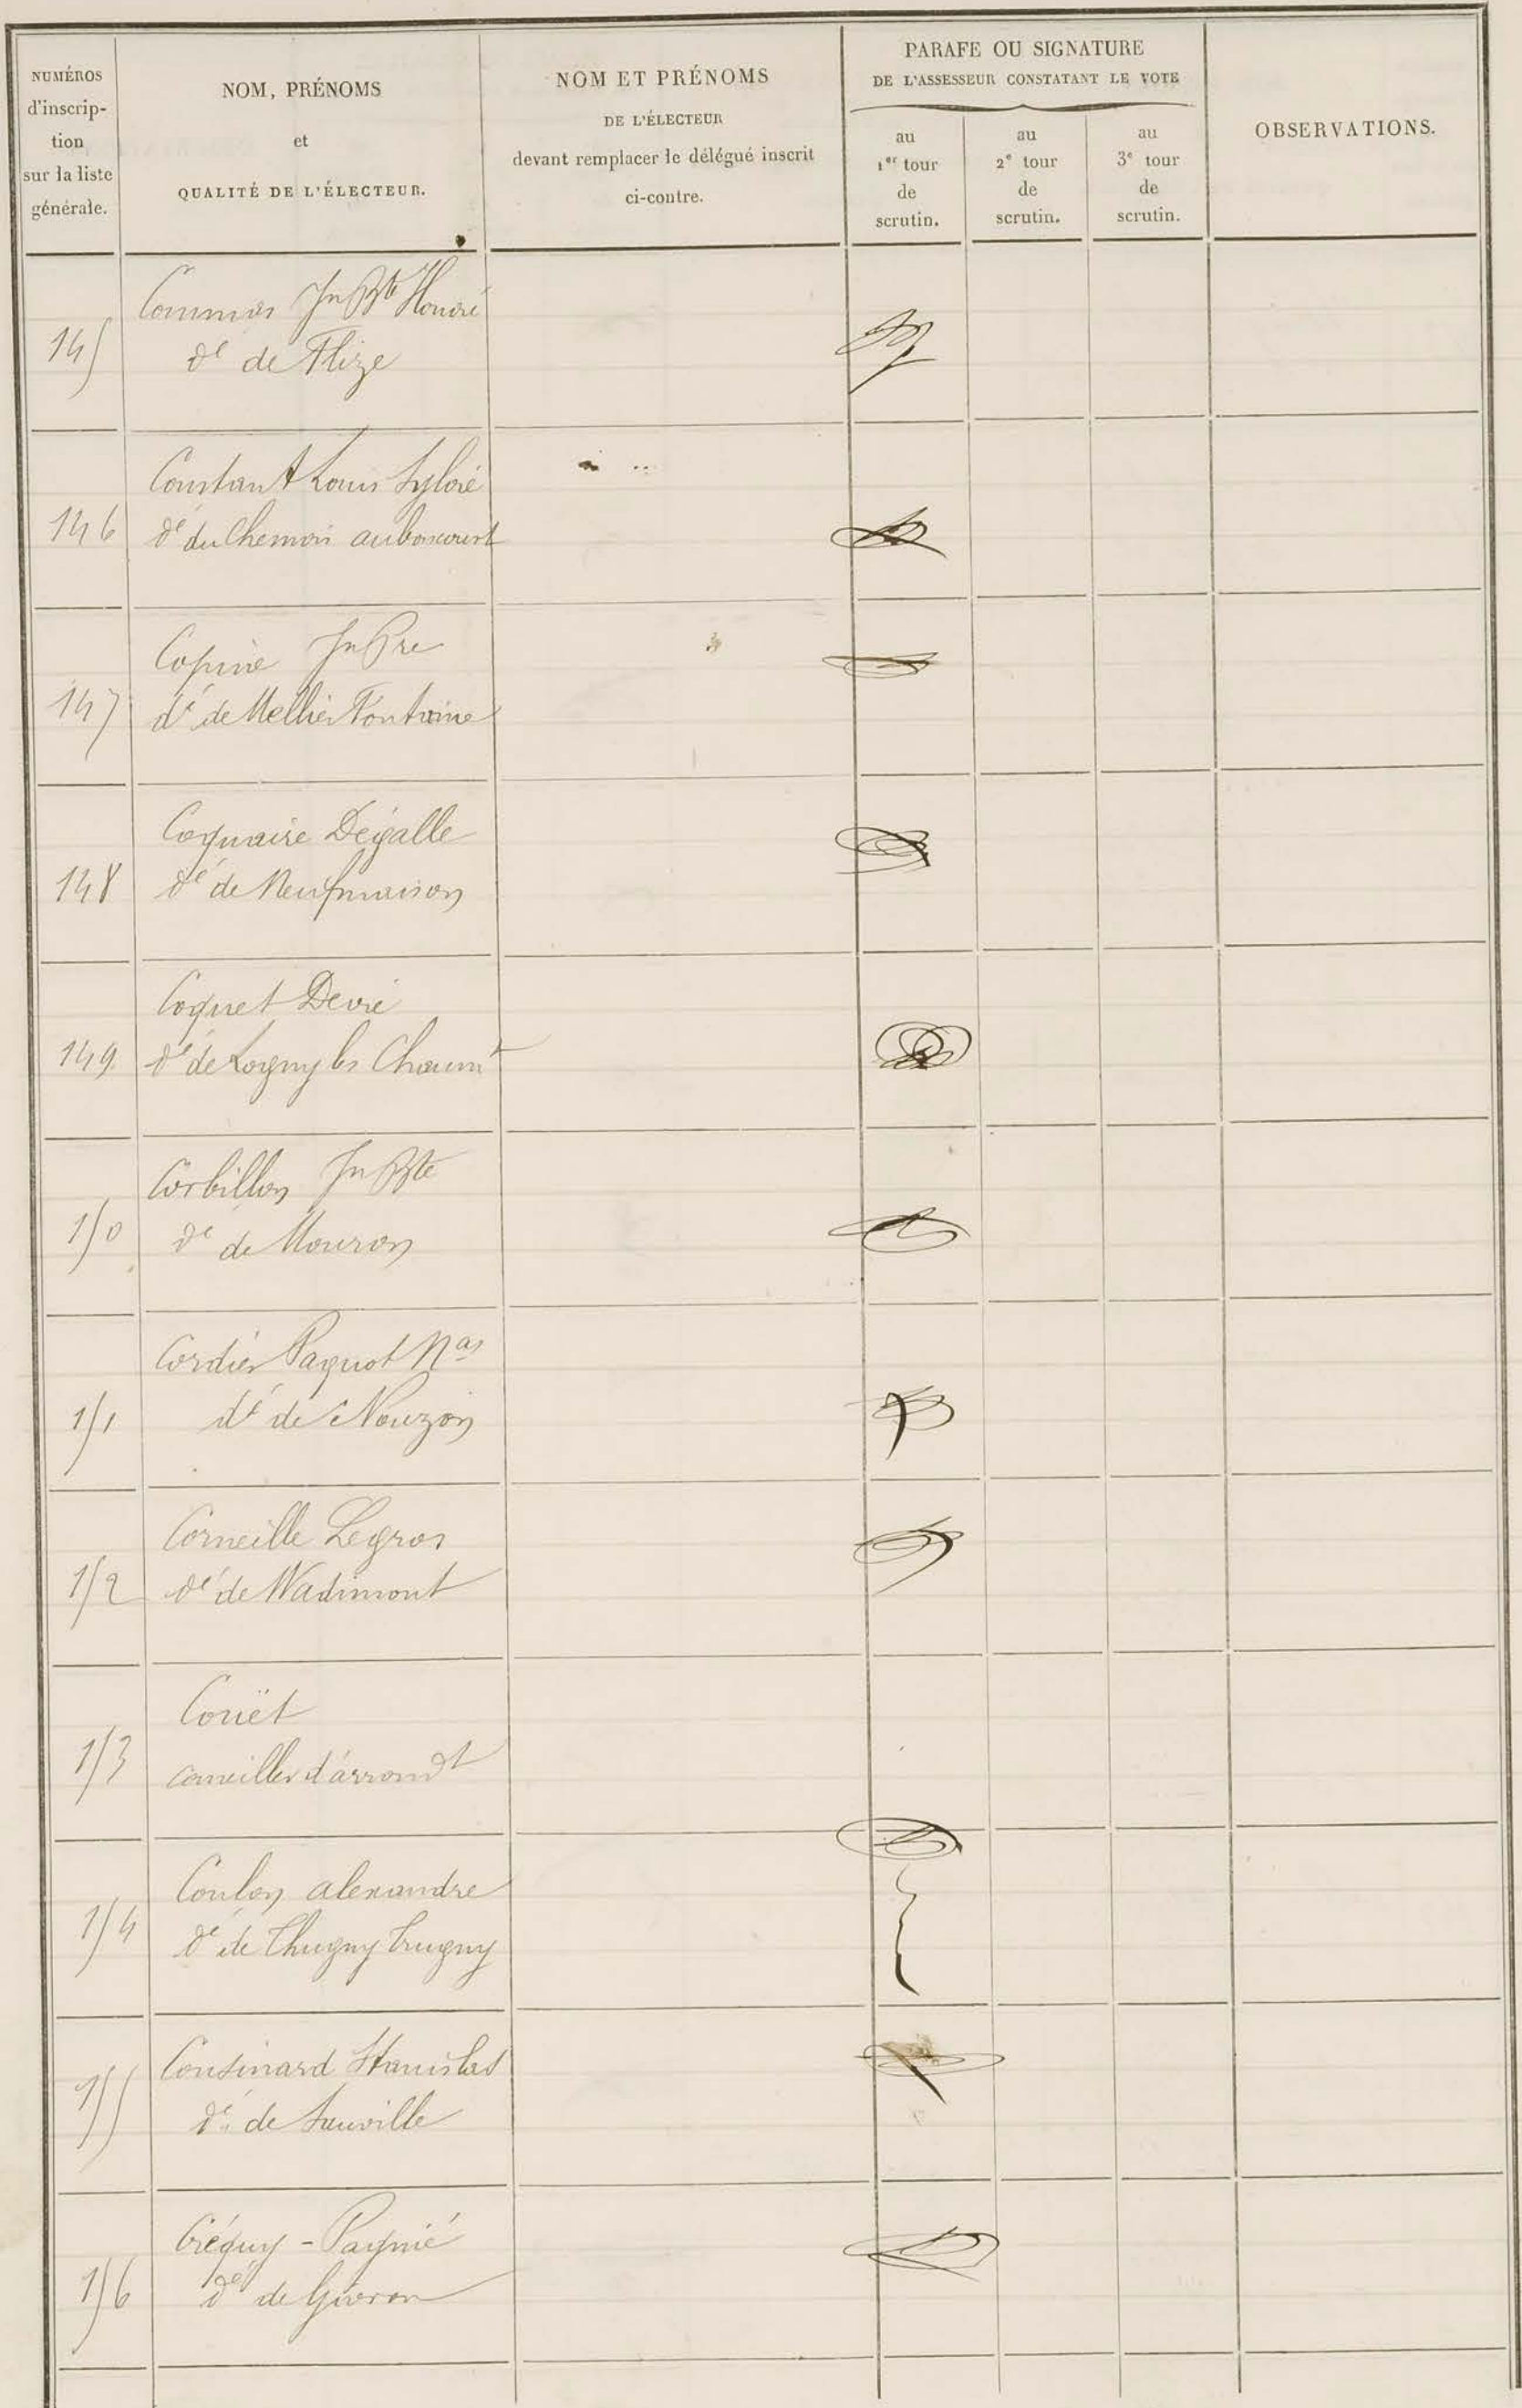 NUMÉROS
d'inscrip-
tion
sur la liste
générale.
NOM, PRÉNOMS
et
QUALITÉ DE L'ÉLECTEUR.
NOM ET PRÉNOMS
DE L'ÉLECTEUR
devant remplacer le délégué inscrit
ci-contre.
PARAFE OU SIGNATURE
DE L'ASSESSEUR CONSTATANT LE VOTE
au
1er tour
de
scrutin.
au
2e tour
de
scrutin.
au
3e tour
de
scrutin.
OBSERVATIONS.
145
Commas Jn Bte Honoré
dé de Flize
146
Constant Louis
dé du Chemin auboncourt
147
Copine Jn Pre
dé de Mellier Fontaine
148
Coquaire Dégalle
dé de Neufmaison
149
Coquet Devie
dé de Logny les Chaumt
150
Corbillon Jn Bte
dé de Mouron
151
Cordier Paquot Nas
dé de Nouzon
152
Corneille Legros
dé de Wadimont
153
Couët
conseiller d'arrondt
154
Coulon alexandre
dé de Thugny Trugny
155
Cousinard Stanislas
dé de Sauville
156
Créquy - Pagnié
dé de Givron